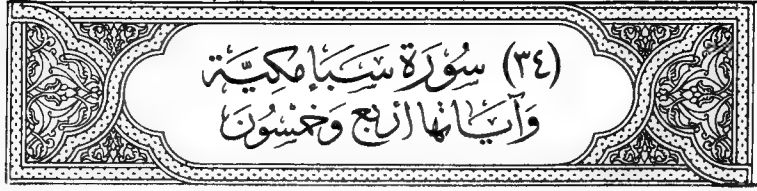 (٣٤) سُورَة سَبَإ مَكيَّة
وَآيَاتها أَرْبَع وَخَمْسُونَ